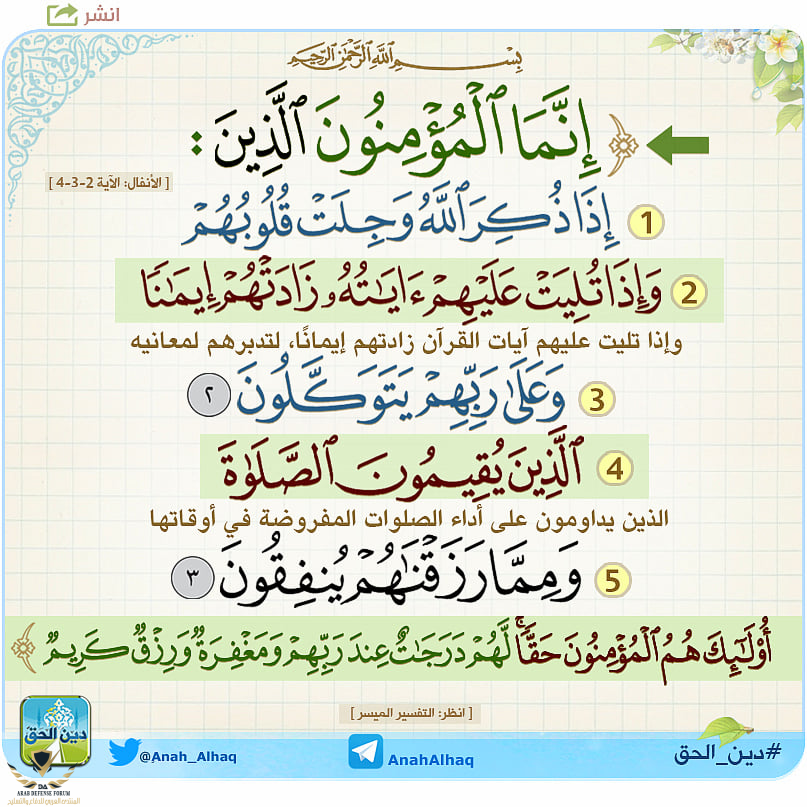 انشر
بِسْمِ اللَّهِ الرَّحْمَٰنِ الرَّحِيمِ
﴿ إِنَّمَا ٱلْمُؤْمِنُونَ ٱلَّذِينَ :
[ الأنفال: الآية 2-3-4 ]
1 إِذَا ذُكِرَ ٱللَّهُ وَجِلَتْ قُلُوبُهُمْ
2 وَإِذَا تُلِيَتْ عَلَيْهِمْ ءَايَـٰتُهُۥ زَادَتْهُمْ إِيمَـٰنًا
وإذا تليت عليهم آيات القرآن زادتهم إيمانًا، لتدبرهم لمعانيه
3 وَعَلَىٰ رَبِّهِمْ يَتَوَكَّلُونَ ٢
4 ٱلَّذِينَ يُقِيمُونَ ٱلصَّلَوٰةَ
الذين يداومون على أداء الصلوات المفروضة في أوقاتها
5 وَمِمَّا رَزَقْنَـٰهُمْ يُنفِقُونَ ٣
أُو۟لَـٰٓئِكَ هُمُ ٱلْمُؤْمِنُونَ حَقًّا ۚ لَّهُمْ دَرَجَـٰتٌ عِندَ رَبِّهِمْ وَمَغْفِرَةٌ وَرِزْقٌ كَرِيمٌ ﴾
[ انظر: التفسير الميسر ]
#دين_الحق
AnahAlhaq
@Anah_Alhaq
دين الحق
DA
ARAB DEFENSE FORUM
المنتدى العربي للدفاع والتسليح